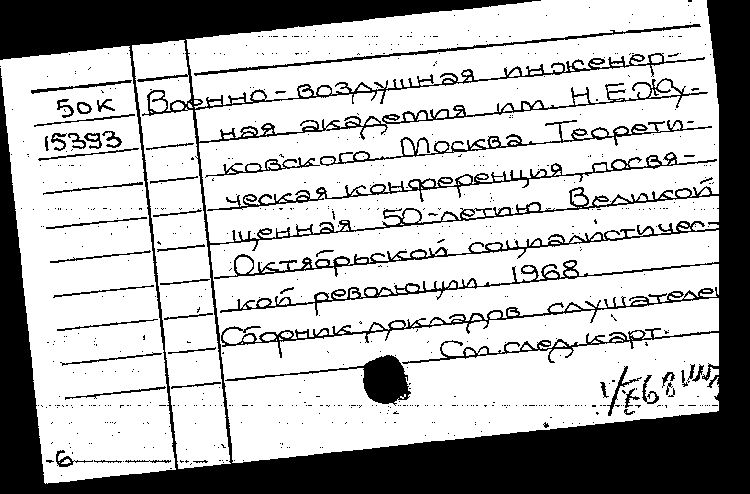 50К Военно-воздушная инженер-
15393 ная академия им. Н.Е.Жу-
ковского. Москва. Теорети-
ческая конференция, посвя-
щенная 50-летию Великой
Октябрьской социалистичес-
кой революции. 1968.
Сборник докладов слушателей
См. след. карт.
6